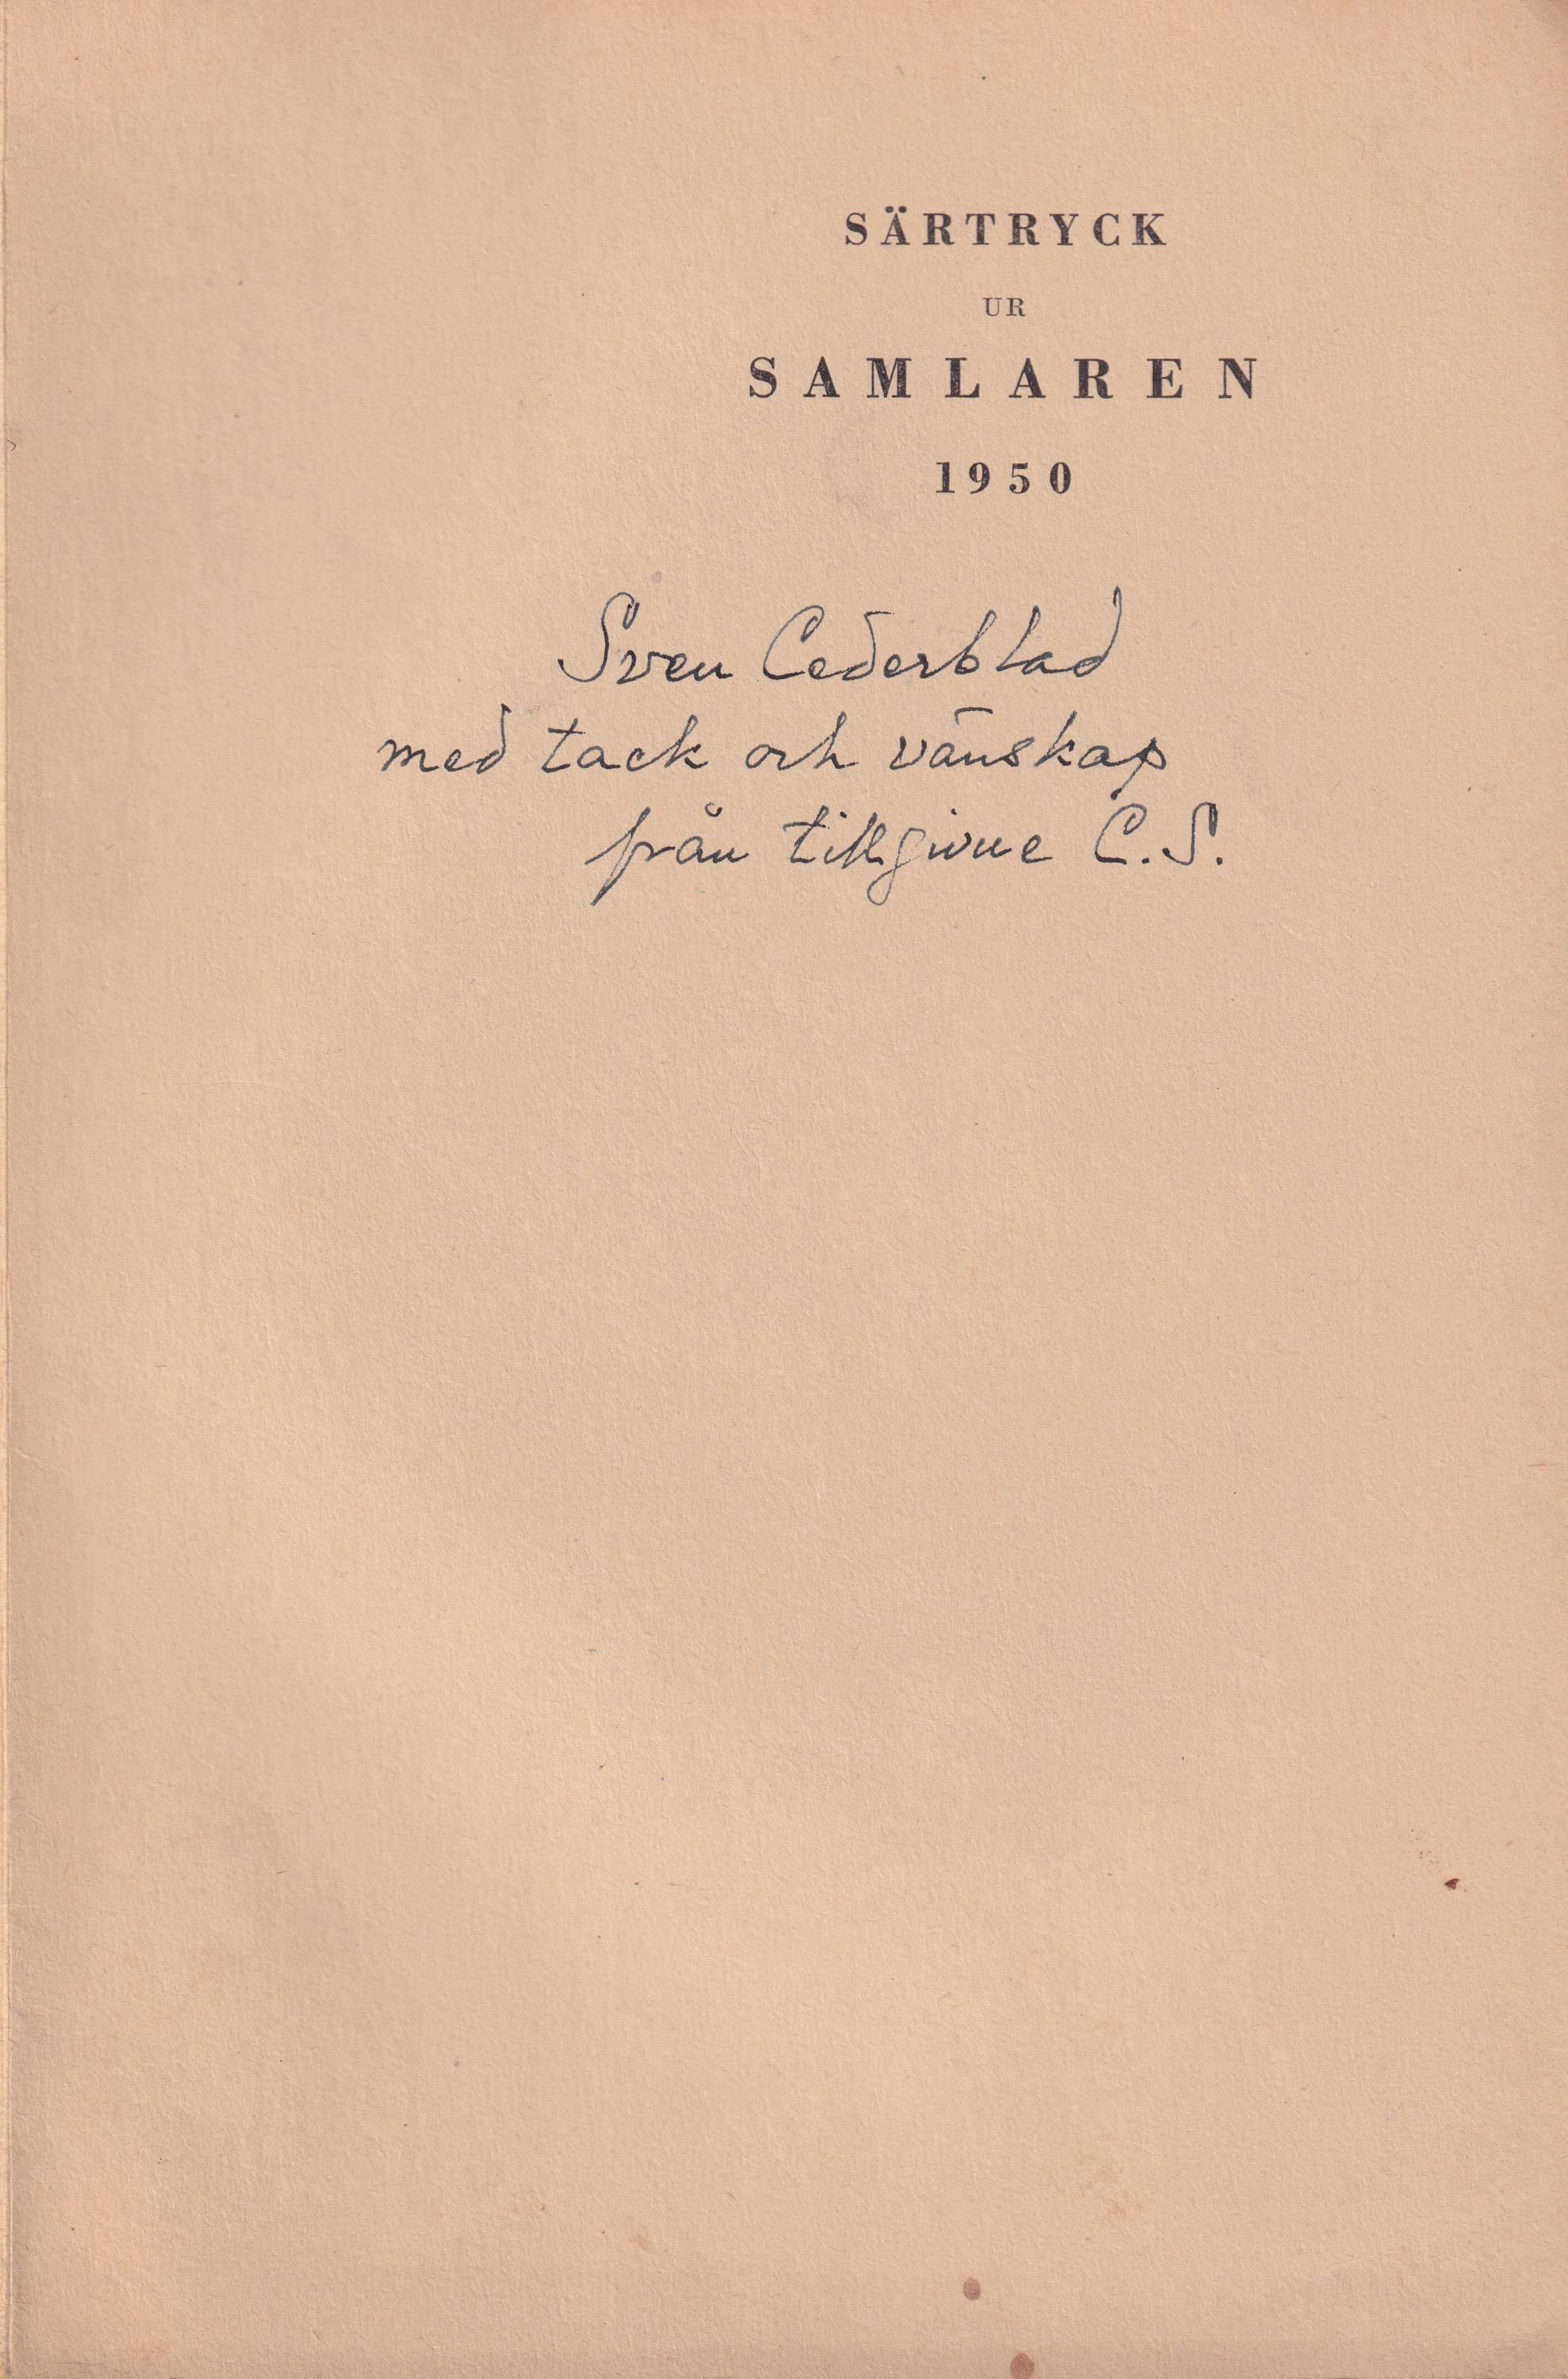 SÄRTRYCK
UR
SAMLAREN
1950
Sven Cederblad
med tack och vänskap
från tillgivne C.S.